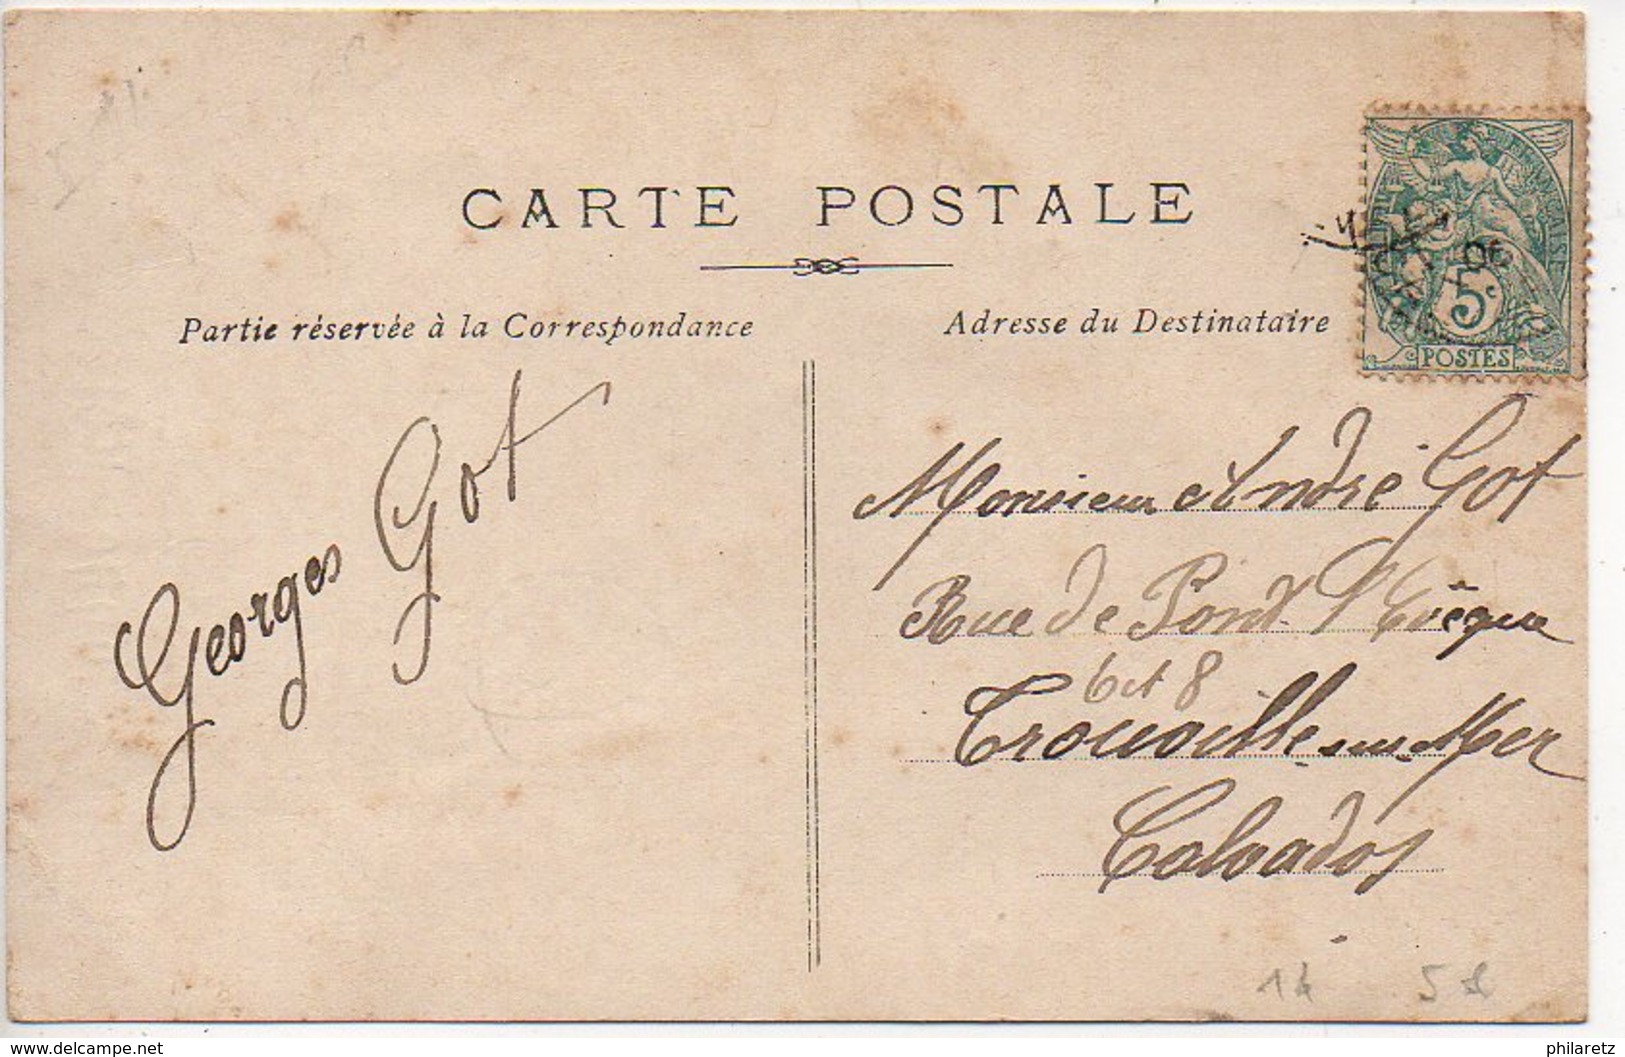 CARTE POSTALE
Partie réservée à la Correspondance
Adresse du Destinataire
5c
POSTES
06
Georges Got
Monsieur André Got
Rue de Pont l'Evêque
6 et 8
Trouville-sur-Mer
Calvados
www.delcampe.net
philaretz